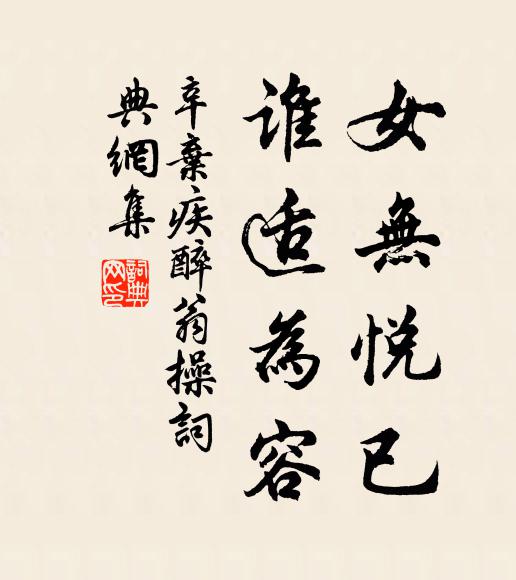 女無悅已
誰适為容
辛棄疾醉翁操詞
典網集
詞典網印